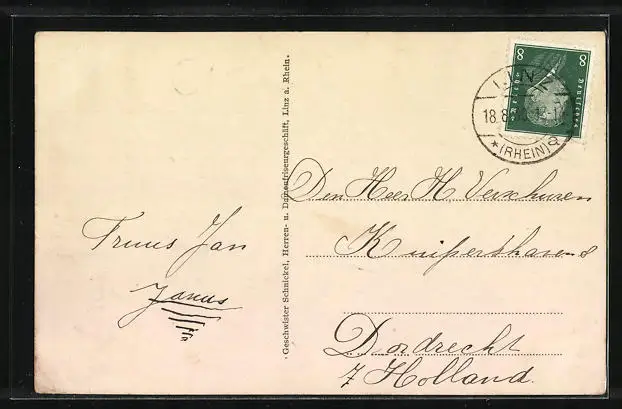 Truus Jan
Janus
Geschwister Schnickel, Herren- u. Damenfriseurgeschäft, Linz a. Rhein.
8 8
Deutsches Reich
LINZ
18.8.
* (RHEIN) a
Den Heer H Verschuren
Kuipershaven 8
Dordrecht
Holland.